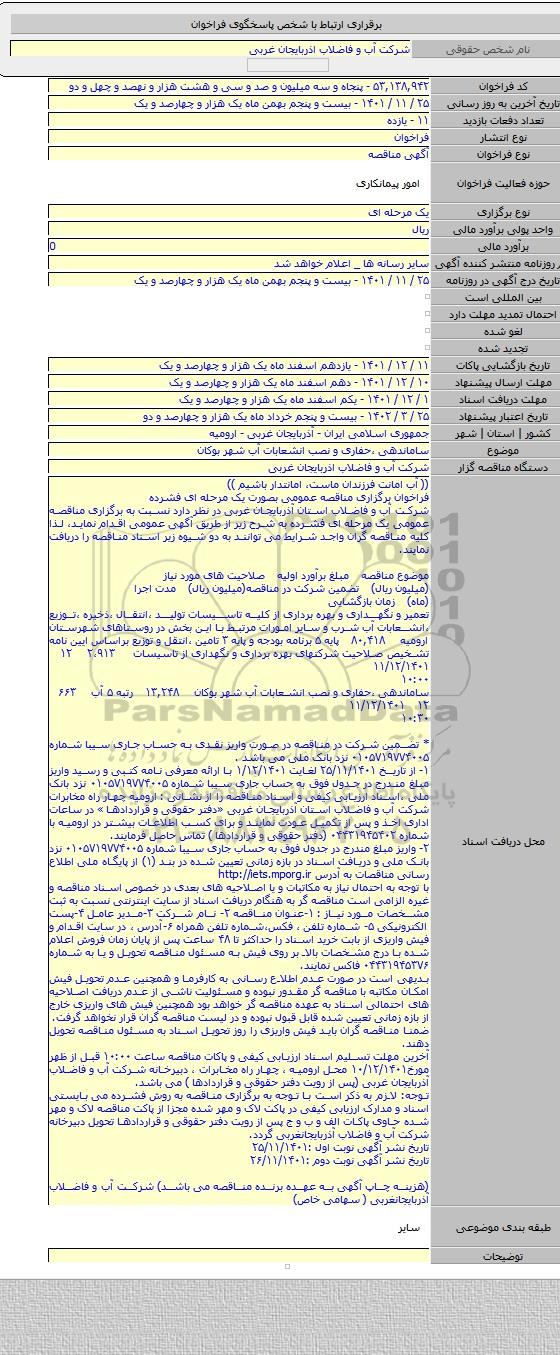 برقراری ارتباط با شخص پاسخگوی فراخوان
نام شخص حقوقی شرکت آب و فاضلاب اذربایجان غربی
کد فراخوان ۵۳,۱۳۸,۹۴۲ - پنجاه و سه میلیون و صد و سی و هشت هزار و نهصد و چهل و دو
تاریخ آخرین به روز رسانی ۲۵ / ۱۱ / ۱۴۰۱ - بیست و پنجم بهمن ماه یک هزار و چهارصد و یک
تعداد دفعات بازدید ۱۱ - یازده
نوع انتشار فراخوان
نوع فراخوان آگهی مناقصه
حوزه فعالیت فراخوان امور پیمانکاری
نوع برگزاری یک مرحله ای
واحد پولی برآورد مالی ریال
برآورد مالی 0
روزنامه منتشر کننده آگهی سایر رسانه ها _ اعلام خواهد شد
تاریخ درج آگهی در روزنامه ۲۵ / ۱۱ / ۱۴۰۱ - بیست و پنجم بهمن ماه یک هزار و چهارصد و یک
بین المللی است
احتمال تمدید مهلت دارد
لغو شده
تجدید شده
تاریخ بازگشایی پاکات ۱۱ / ۱۲ / ۱۴۰۱ - یازدهم اسفند ماه یک هزار و چهارصد و یک
مهلت ارسال پیشنهاد ۱۰ / ۱۲ / ۱۴۰۱ - دهم اسفند ماه یک هزار و چهارصد و یک
مهلت دریافت اسناد ۱ / ۱۲ / ۱۴۰۱ - یکم اسفند ماه یک هزار و چهارصد و یک
تاریخ اعتبار پیشنهاد ۲۵ / ۳ / ۱۴۰۲ - بیست و پنجم خرداد ماه یک هزار و چهارصد و دو
کشور | استان | شهر جمهوری اسلامی ایران - آذربایجان غربی - ارومیه
موضوع ساماندهی ،حفاری و نصب انشعابات آب شهر بوکان
دستگاه مناقصه گزار شرکت آب و فاضلاب اذربایجان غربی
(( آب امانت فرزندان ماست، امانتدار باشیم ))
فراخوان برگزاری مناقصه عمومی بصورت یک مرحله ای فشرده
شرکت آب و فاضلاب استان آذربایجان غربی در نظر دارد نسبت به برگزاری مناقصه
عمومی یک مرحله ای فشرده به شرح زیر از طریق آگهی عمومی اقدام نماید، لذا
کلیه مناقصه گران واجد شرایط می توانند به دو شیوه زیر اسناد مناقصه را دریافت
نمایند.
موضوع مناقصه مبلغ برآورد اولیه صلاحیت های مورد نیاز
(میلیون ریال) تضمین شرکت در مناقصه(میلیون ریال) مدت اجرا
(ماه) زمان بازگشایی
تعمیر و نگهداری و بهره برداری از کلیه تاسیسات تولید ،انتقال ،ذخیره ،توزیع
،انشعابات آب شرب و سایر امورات مرتبط با این بخش در روستاهای شهرستان
ارومیه ۸۰,۴۱۸ پایه ۵ برنامه بودجه و پایه ۳ تامین ،انتقل و توزیع براساس ایین نامه
تشخیص صلاحیت شرکتهای بهره برداری و نگهداری از تاسیسات ۲.۹۱۳ ۱۲
۱۱/۱۲/۱۴۰۱
۱۰:۰۰
ساماندهی ،حفاری و نصب انشعابات آب شهر بوکان ۱۳,۲۴۸ رتبه ۵ آب ۶۶۳
۱۲ ۱۱/۱۲/۱۴۰۱
۱۰:۳۰
* تضمین شرکت در مناقصه در صورت واریز نقدی به حساب جاری سیبا شماره
۰۱۰۵۷۱۹۷۷۴۰۰۵ نزد بانک ملی می باشد .
۱- از تاریخ ۲۵/۱۱/۱۴۰۱ لغایت ۱/۱۲/۱۴۰۱ با ارائه معرفی نامه کتبی و رسید واریز
مبلغ مندرج در جدول فوق به حساب جاری سیبا شماره ۰۱۰۵۷۱۹۷۷۴۰۰۵ نزد بانک
ملی ،اسناد ارزیابی کیفی و اسناد مناقصه را از نشانی : ارومیه چهار راه مخابرات
شرکت آب و فاضلاب استان آذربایجان غربی «دفتر حقوقی و قراردادها » در ساعات
اداری اخذ و پس از تکمیل عودت نمایند و برای کسب اطلاعات بیشتر در ارومیه با
شماره ۰۴۴۳۱۹۴۵۴۰۲ (دفتر حقوقی و قراردادها ) تماس حاصل فرمایند.
۲- واریز مبلغ مندرج در جدول فوق به حساب جاری سیبا شماره ۰۱۰۵۷۱۹۷۷۴۰۰۵ نزد
بانک ملی و دریافت اسناد در بازه زمانی تعیین شده در بند (۱) از پایگاه ملی اطلاع
رسانی مناقصات به آدرس http://iets.mporg.ir
با توجه به احتمال نیاز به مکاتبات و یا اصلاحیه های بعدی در خصوص اسناد مناقصه و
غیره الزامی است مناقصه گر به هنگام دریافت اسناد از سایت اینترنتی نسبت به ثبت
مشخصات مورد نیاز : ۱-عنوان مناقصه ۲- نام شرکت ۳-مدیر عامل ۴-پست
الکترونیکی ۵- شماره تلفن ، فکس،شماره تلفن همراه ۶-آدرس ، در سایت اقدام و
فیش واریزی از بابت خرید اسناد را حداکثر تا ۴۸ ساعت پس از پایان زمان فروش اعلام
شده با درج مشخصات بالا، بر روی فیش به مسئول مناقصه تحویل و یا به شماره
۰۴۴۳۱۹۴۵۳۷۶ فاکس نمایند.
بدیهی است در صورت عدم اطلاع رسانی به کارفرما و همچنین عدم تحویل فیش
امکان مکاتبه با مناقصه گر مقدور نبوده و مسئولیت ناشی از عدم دریافت اصلاحیه
های احتمالی اسناد به عهده مناقصه گر خواهد بود همچنین فیش های واریزی خارج
از بازه زمانی تعیین شده قابل قبول نبوده و در لیست مناقصه گران قرار نخواهد گرفت.
ضمنا مناقصه گران باید فیش واریزی را روز تحویل اسناد به مسئول مناقصه تحویل
دهند.
محل دریافت اسناد
آخرین مهلت تسلیم اسناد ارزیابی کیفی و پاکات مناقصه ساعت ۱۰:۰۰ قبل از ظهر
مورخ۱۰/۱۲/۱۴۰۱ محل ارومیه ، چهار راه مخابرات ، دبیرخانه شرکت آب و فاضلاب
آذربایجان غربی (پس از رویت دفتر حقوقی و قراردادها ) می باشد.
توجه: لازم به ذکر است با توجه به برگزاری مناقصه به روش فشرده می بایستی
اسناد و مدارک ارزیابی کیفی در پاکت لاک و مهر شده مجزا از پاکت مناقصه لاک و مهر
شده حاوی پاکات الف و ب و ج پس از رویت دفتر حقوقی و قراردادها تحویل دبیرخانه
شرکت آب و فاضلاب آذربایجانغربی گردد.
تاریخ نشر آگهی نوبت اول :۲۵/۱۱/۱۴۰۱
تاریخ نشر آگهی نوبت دوم :۲۶/۱۱/۱۴۰۱
(هزینه چاپ آگهی به عهده برنده مناقصه می باشد) شرکت آب و فاضلاب
آذربایجانغربی ( سهامی خاص)
طبقه بندی موضوعی سایر
توضیحات
ParsNamadData